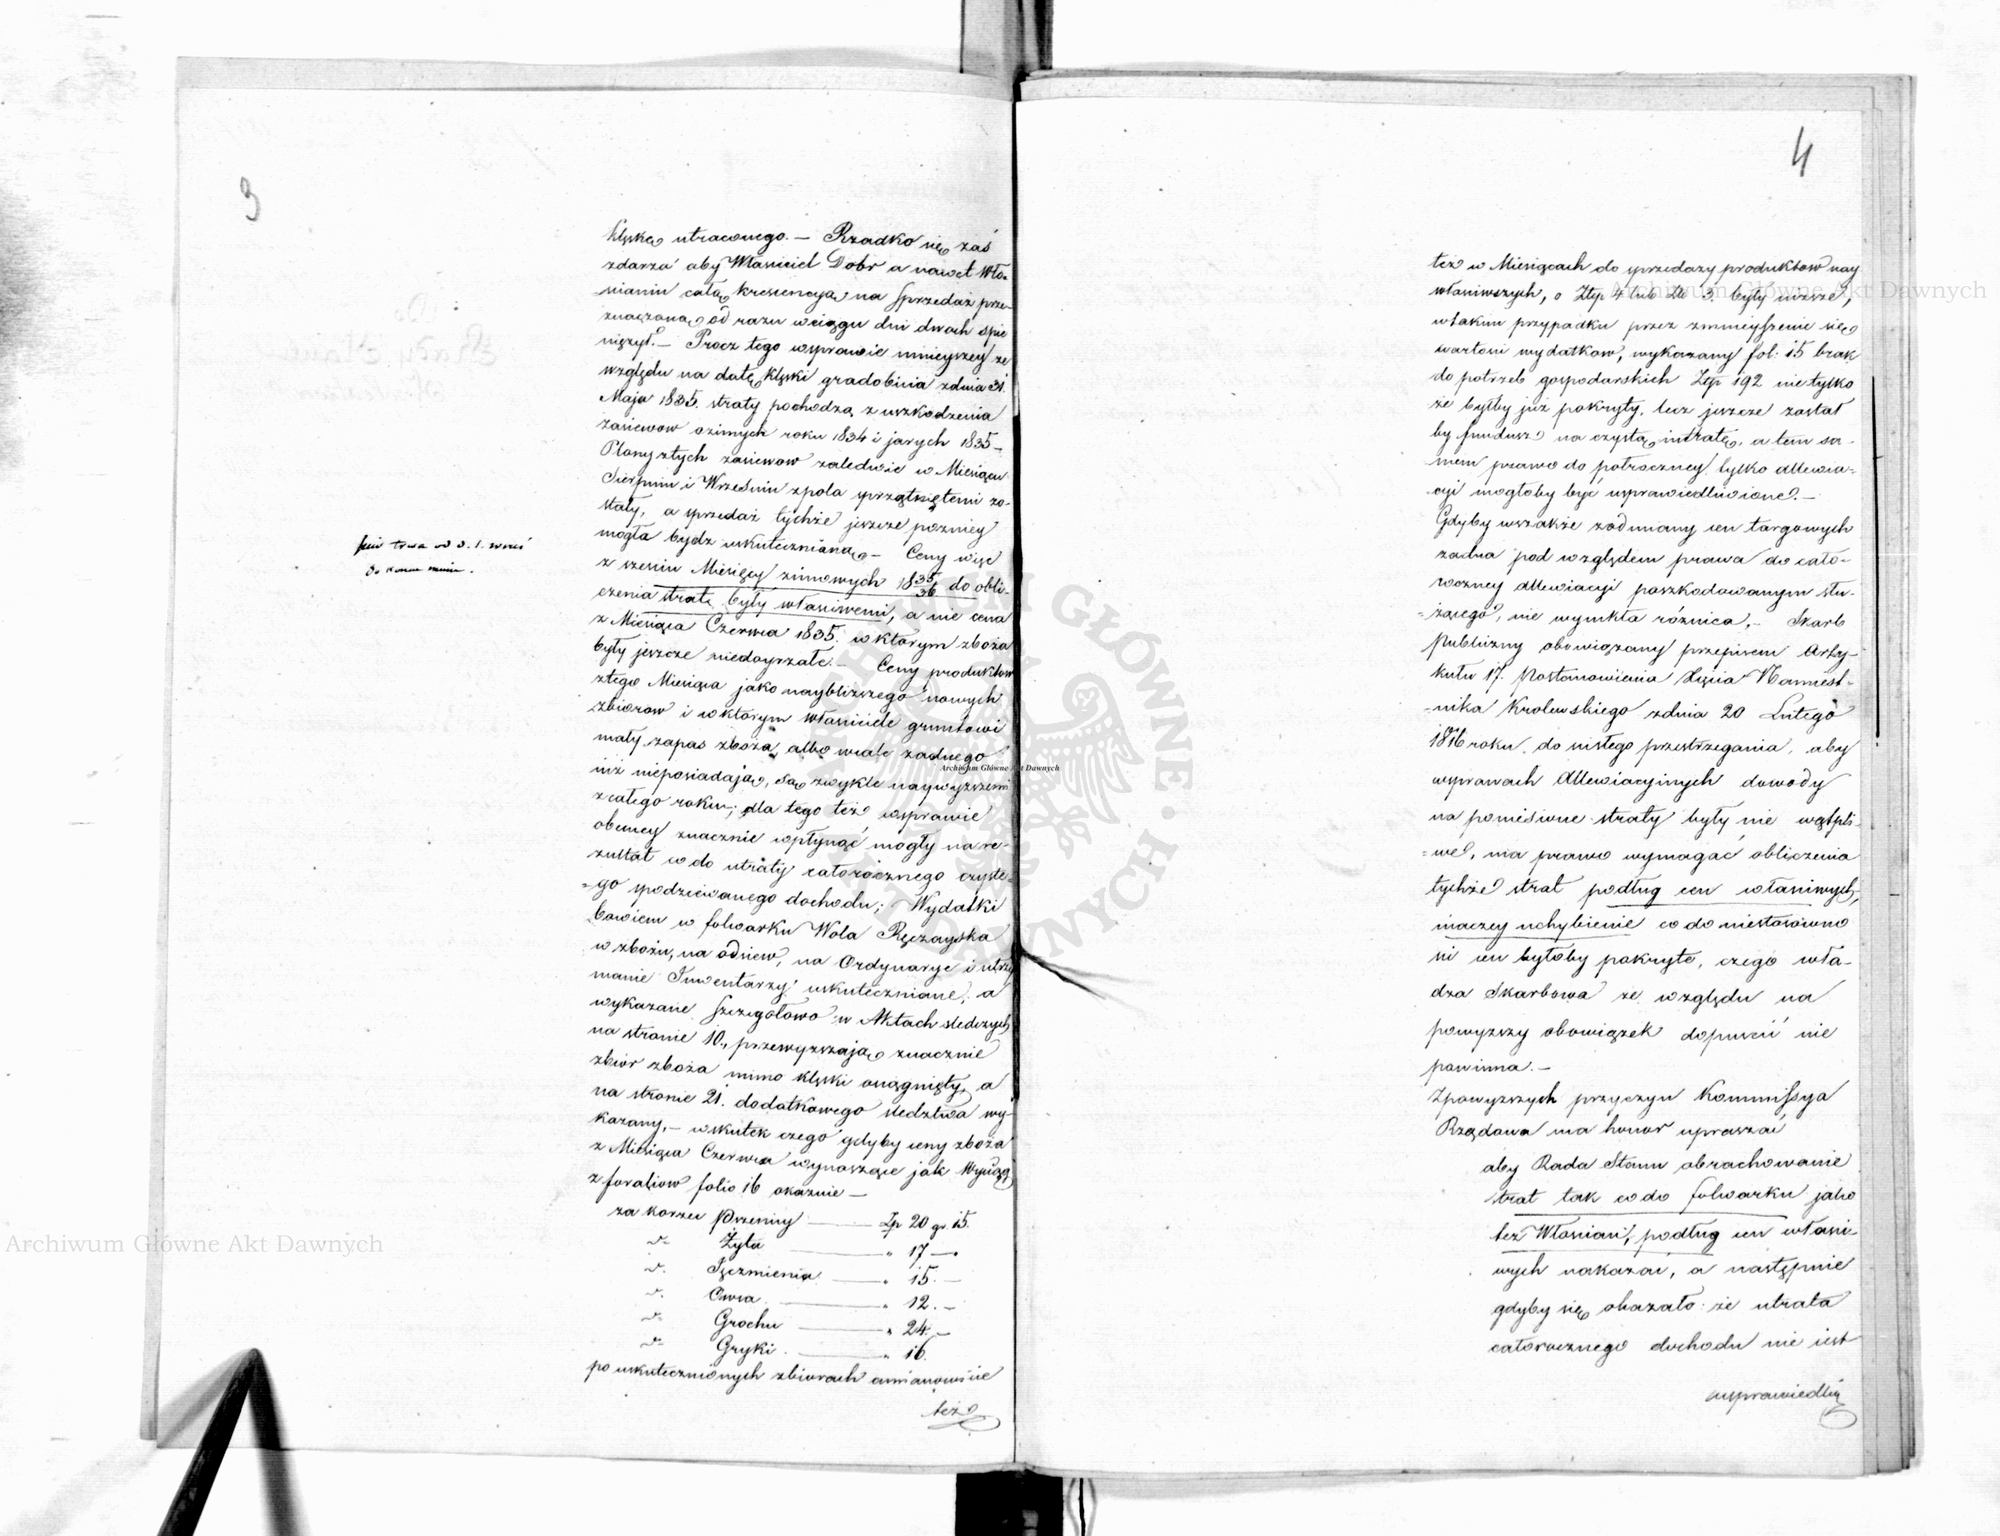 3
klęską utraconego. — Rzadko się zaś
zdarza aby Właściciel Dobr a nawet Wło-
ścianin całą krescencyą na sprzedaż prze-
znaczoną od razu w ciągu dni dwóch spie
niężył. — Procz tego w sprawie ninieyszey ze
względu na datę klęski gradobicia z dnia 31.
Maja 1835. straty pochodzą z uszkodzenia
zasiewow ozimych roku 1834 i jarych 1835 —
Plony z tych zasiewow zaledwie w Miesiącu
Sierpniu i Wrześniu z pola sprzątniętemi zo-
stały, a sprzedaż tychże jeszcze pozniey
mogła bydz uskutecznianą — Ceny więc
z sześciu Miesięcy zimowych 1835/36 do obli-
czenia strat, były właściwemi, a nie cena
z Miesiąca Czerwca 1835. w ktorym zboża
były jeszcze niedoyrzałe. — Ceny produktow
z tego Miesiąca jako naybliższego nowych
zbiorow i w ktorym właściciele gruntowi
mały zapas zboża, albo wcale żadnego
już nieposiadają, są zwykle naywyższemi
z całego roku; dla tego też w sprawie
obecney znacznie wpłynąć mogły na re-
zultat co do utraty całorocznego czyste-
-go spodziewanego dochodu; Wydatki
bowiem w folwarku Wola Ręczayska
w zbożu, na odsiew, na Ordynarye i utrzy
manie Inwentarzy uskutecznione, a
wykazane szczegółowo w Aktach śledczych
na stronie 10., przewyższają znacznie
zbiór zboża mimo klęski osiągnięty, a
na stronie 21. dodatkowego śledztwa wy-
kazany, — wskutek czego gdyby ceny zboża
z Miesiąca Czerwca wynoszące jak Wyciąg
z foraliow folio 16 okazuie —
za korzec Pszenicy — Zp 20 gr. 15.
" Żyta — " 17 —
" Jęczmienia — " 15. —
" Owsa — " 12. —
" Grochu — " 24. —
" Gryki — " 16.
po uskutecznionych zbiorach a mianowicie
też
trwa od d. 1.
do końca
4
też w Miesiącach do sprzedaży produktow nay
właściwszych, o Złp 4 lub Zł 3. były niższe,
w takim przypadku przez zmnieyszenie się
wartości wydatkow, wykazany fol: 15 brak
do potrzeb gospodarskich Złp 192 nietylko
że byłby już pokryty, lecz jeszcze został
by fundusz na czystą intratę, a tem sa-
mem prawo do potroczney tylko allewia-
cyi mogłoby być usprawiedliwione. —
Gdyby wszakże z odmiany cen targowych
żadna pod względem prawa do cało-
roczney Allewiacyi poszkodowanym słu-
-żącego, nie wynikła różnica, — Skarb
Publiczny obowiązany przepisem Arty-
kułu 17. Postanowienia Xięcia Namiest-
-nika Krolewskiego z dnia 20 Lutego
1816 roku. do ścisłego przestrzegania, aby
w sprawach Allewiacyinych dowody
na poniesione straty były nie wątpli-
-we, ma prawo wymagać obliczenia
tychże strat podług cen właściwych,
inaczey uchybienie co do niestosowno
ści cen byłoby pokryte, czego wła-
dza Skarbowa ze względu na
powyższy obowiązek dopuścić nie
powinna. —
Z powyższych przyczyn Kommissya
Rządowa ma honor upraszać
aby Rada Stanu obrachowanie
strat tak co do folwarku jako
też Włościan, podług cen właści-
wych nakazać, a następnie
gdyby się okazało że utrata
całorocznego dochodu nie iest
usprawiedliw
Archiwum Główne Akt Dawnych
Archiwum Główne Akt Dawnych
Archiwum Główne Akt Dawnych